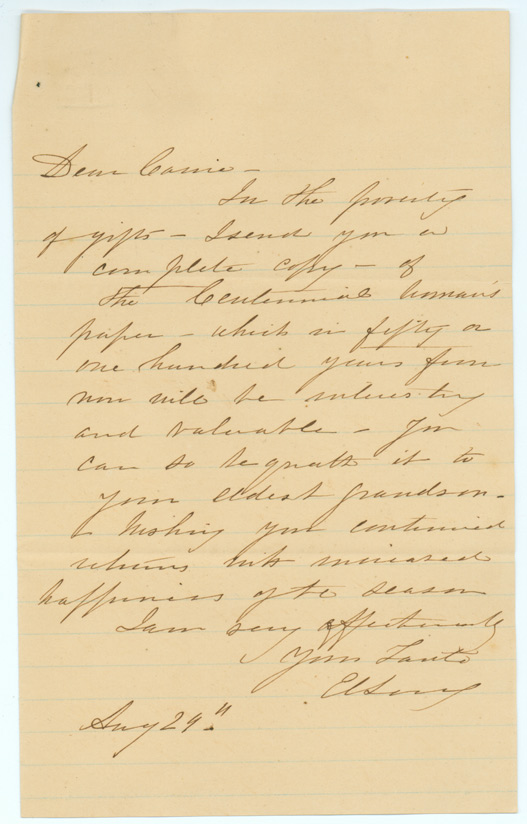 Dear Carrie -
In the poverty
of gifts - I send you a
complete copy - of
the Centennial Woman's
paper - which in fifty or
one hundred years from
now will be interesting
and valuable - You
can so bequeath it to
your eldest grandson -
Wishing you continued
returns with increased
happiness of the season
I am very affectionately
Your
Aug 29th